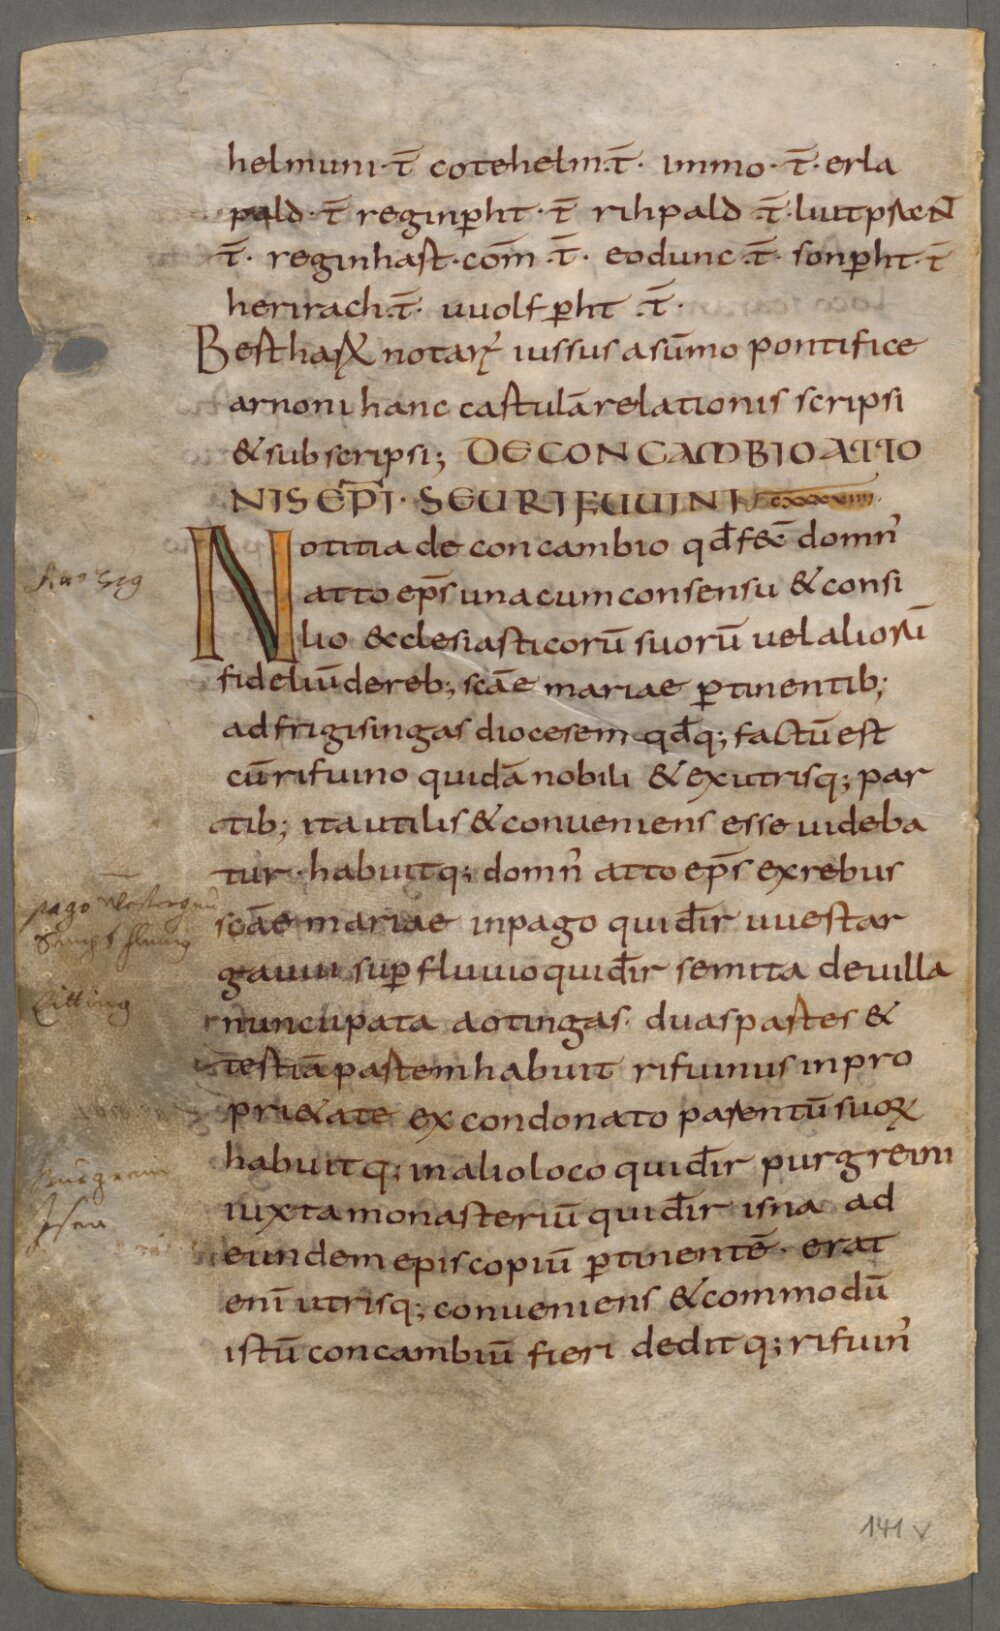 helmuni · t̄ cotehelm · t̄ · immo · t̄ · erla
pald · t̄ reginp̱ht · t̄ rihpald · t̄ · luitpraen̄
t̄ · reginhart · com̄ · t̄ · eodunc · t̄ · sonp̱ht · t̄
herirach · t̄ · uuolfp̱ht · t̄ ·
Bertharꝭ notarꝭ iussus a sūmo pontifice
arnoni hanc cartulā relationis scripsi
& subscripsi; DE CONCAMBIO ATTO
NIS EP̄I · SEU RIFUUINI cxxxviiii ·
Notitia de concambio qđ fec̄ domn᾽
atto ep̄s una cum consensu & consi
lio &clesiasticorū suorū uel aliorū
fideliū de reb; sc̄ae mariae p̱tinentib;
ad frigisingas diocesem qđq; factū est
cū rifuino quidā nobili & ex utrisq; par
tib; ita utilis & conueniens esse uideba
tur · habuitq; domn᾽ atto ep̄s ex rebus
sc̄ae mariae in pago qui đir uuestar
gauui sup̱ fluuio qui đir semita de uilla
nuncupata aotingas · duas partes &
tertiā partem habuit rifuinus in pro
pri&ate ex condonato parentū suoꝝ
habuitq; in alio loco qui đir purgreini
iuxta monasteriū qui đir isna ad
eundem episcopiū p̱tinentē · erat
eni utrisq; conueniens & commodū
istū concambiū fieri deditq; rifuin᾽
pago Westergau
Sempt fluuius
Eitting
Burgrein
Isen
141 v